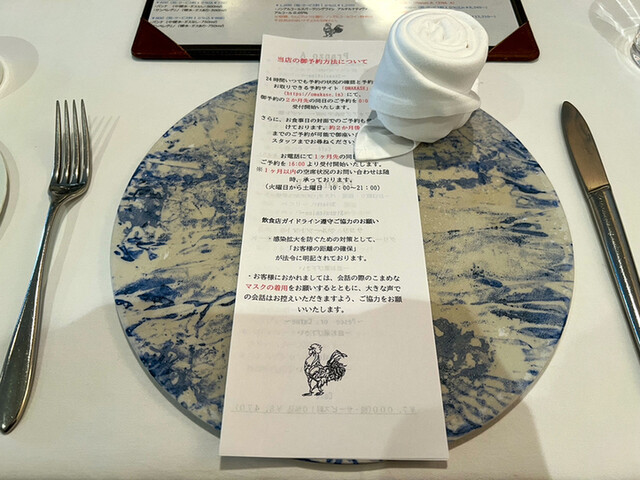 当店の御予約方法について
24時間いつでも予約の状況の確認と予約
お取りできる予約サイト「OMAKASE」
(https://omakase.in) にて、
御予約の2か月先の同日のご予約を0:0
受付開始いたします。
さらに、お食事日の対面でのご予約も
けております。約2か月後
までのご予約が可能で御座い
スタッフまでお尋ねください
お電話にて1ヶ月先の同
ご予約を16:00より受付開始いたします。
※1ヶ月以内の空席状況のお問い合わせは随
時、承っております。
(火曜日から土曜日 10:00~21:00)
飲食店ガイドライン遵守ご協力のお願い
・感染拡大を防ぐための対策として、
「お客様の距離の確保」
が法令に明記されております。
・お客様におかれましては、会話の際のこまめな
マスクの着用をお願いするとともに、大きな声で
の会話はお控えいただきますよう、ご協力をお願
いいたします。